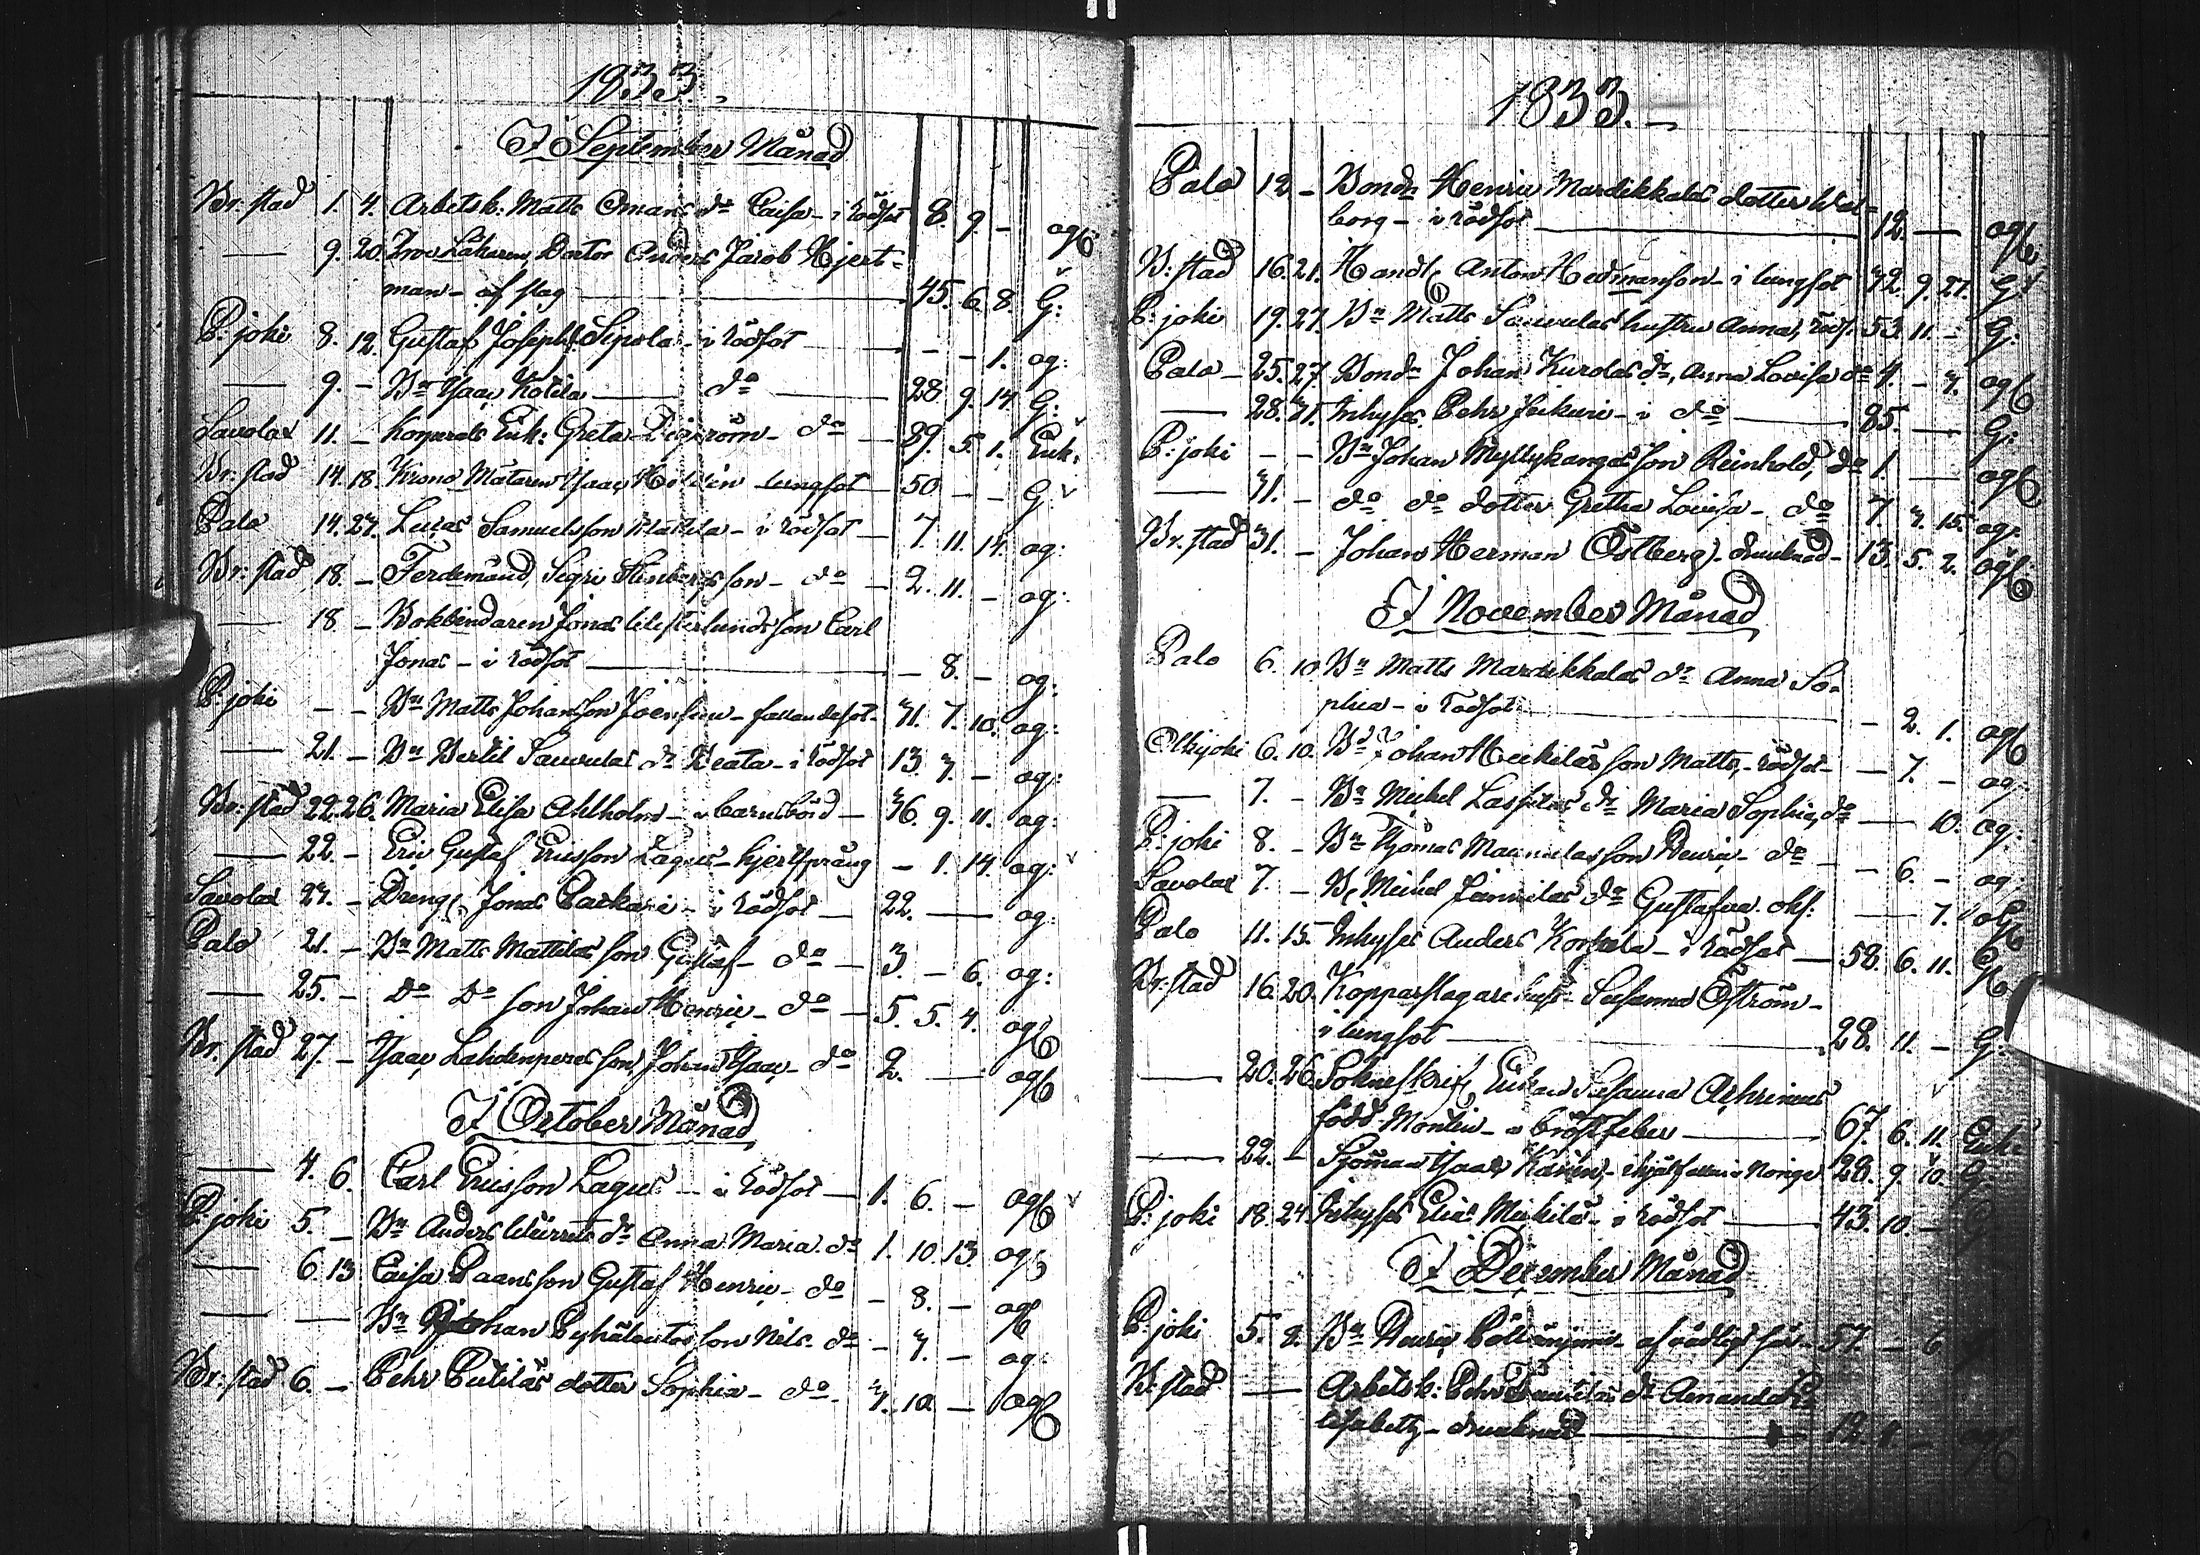 1833.
I September Månad
Br. stad 1. 4. Arbetsk: Matts Omans dr Caisa - i rödsot 8. 9. - og
— 9. 20. Prov. Läkaren, Doctor Anders Jacob Hjert-
man - af slag — 45. 6. 8. G:
P: joki 8. 12. Gustaf Josephs. Sipola - i rödsot — - - 1. og:
— 9. - Bn Isaac Kotila — do — 28. 9. 14. G:
Savolax 11. - Korporals Enk: Greta - do - 89. 5. 1. Enk:
Br. stad 14. 18. Krono Mätaren Isaac lungsot 50 - - G
Palo 14. 27. Lucas Samuelsson Mattila - i rödsot - 7. 11. 14. og:
Br: stad 18. - Ferdinand, son - do - 2. 11. - og:
— 18. - Bokbindaren Jonas son Carl
Jonas - i rödsot — - 8. - og:
P: joki - - Bn Matts Johansson fallandesot - 31. 7. 10. og:
— 21. - Bn Bertil Sauvulas dr Beata - i rödsot 13. 3. - og:
Br: stad 22. 26. Maria Elisa Ahlholm - i barnsbörd - 36. 9. 11. og:
— 22. - Eric Gustaf Ericsson Lagus - hjertsprång - 1. 14. og:
Savolax 23. - Dreng. Jonas - i rödsot - 22. — og:
Palo 21. - Bn Matts Mattilas son Gustaf - do - 3. - 6. og:
— 25. - Do Do son Johan Henric - do - 5. 5. 4. og
Br. stad 27. - Isaac Lahdenperäs son Johan Isaac - do 2. — og
I October Månad
— 4. 6. Carl Ericsson Lagus - i rödsot - 1. 6. - og
P: joki 5. - Bn Anders dr Anna Maria. do 1. 10. 13. og
— 6. 13 Caisa Paans son Gustaf Henric - do - 8. - og
— — Bn Johan Pyhäluotos son Nils - do - 3. - og:
Br: stad 6. - Pehr dotter Sophia - do - 3. 10. - og
1833. -
Palo 12 - Bond. Henric Mardikkalas dotter Wal-
borg - i rödsot — 12. — og
B: stad 16. 21. Handl. Anton Hedmanson - i lungsot 32. 9. 27. G
P: joki 19. 27. Bn Matts Sauvulas hustru Anna, röds. 53. 11. - G:
Palo - 25. 27. Bond. Johan Kurolas dr, Anna Lovisa do 4. - 3. og
— 28. 31. Inhyses Pehr - i do — 85. — G:
P: joki - - Bn Johan Myllykangas son Reinhold, do 1. — og
— 31. - do do dotter Greta Lovisa - do 7. 3. 15. og:
Br. stad 31. - Johan Herman Östberg - drunknad - 13. 5. 2. og
I November Månad
Palo 6. 10. Bn Matts Mardikkalas dr Anna So-
phia - i rödsot — - 2. 1. og
Olkijoki 6. 10. Bn Johan Heikiläs son Matts, - rödsot - - 7. - og:
— 7. - Bn Michel Lassilas dr Maria Sophia, do — 10. og:
P: joki 8. - Bn Thomas Maunulas son Henric - do - - 6. - og:
Savolax 7. - B. Michel dr Gustafva. — 7.
Palo 11. 15. Inhyses Anders Korkala - i rödsot - 58. 6. 11. G
Br. stad 16. 20. Kopparslagare hust. Susanna Öström -
i lungsot — 28. 11. - G:
— 20. 26. Sokneskrif. Enkan Susanna Achrenius
född Montin - i bröstfeber — 67. 6. 11. Enk:
— 22. - Sjöman Isaac - ihjälfallen i Norige 28. 9. 10. G:
P: joki 18. 24. Inhyses Elias Mickilä - i rödsot — 43. 10. -
I December Månad
P: joki 5. 8. Bn Henric - af vådlig 57. - 6
B: stad — Arbetsk: Pehr dr Amanda E-
lisabeth - drunknad — 12. 8. -